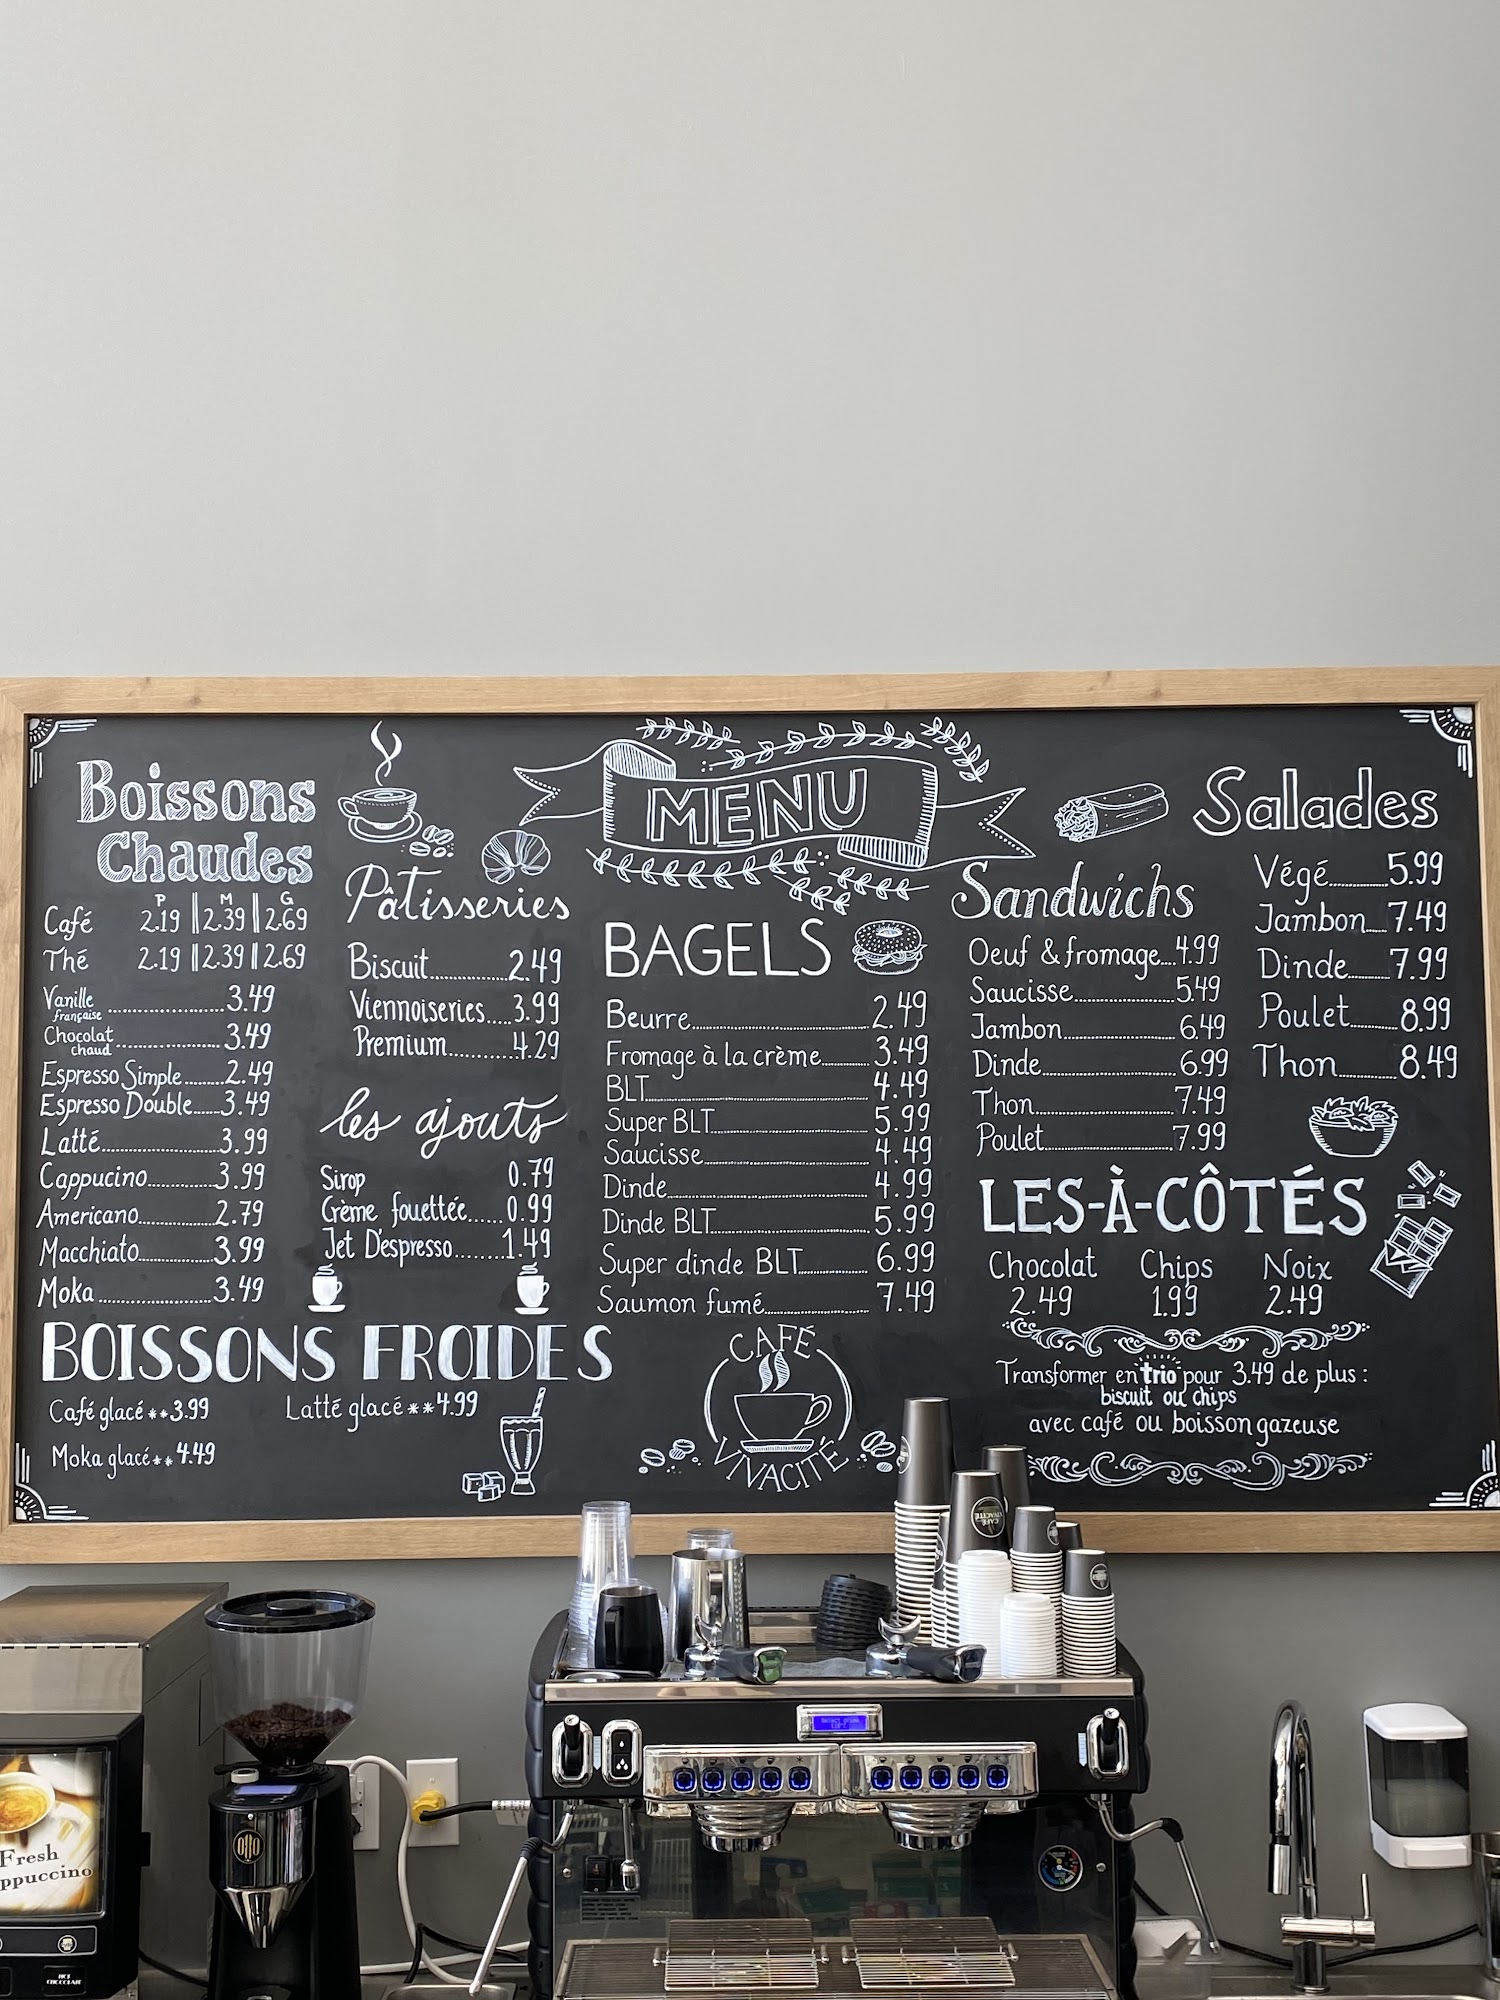 MENU
Boissons
Chaudes
P M G
Café 2.19 2.39 2.69
Thé 2.19 2.39 2.69
Vanille française 3.49
Chocolat chaud 3.49
Espresso Simple 2.49
Espresso Double 3.49
Latté 3.99
Cappucino 3.99
Americano 2.79
Macchiato 3.99
Moka 3.49
Pâtisseries
Biscuit 2.49
Viennoiseries 3.99
Premium 4.29
les ajouts
Sirop 0.79
Crème fouettée 0.99
Jet D'espresso 1.49
BOISSONS FROIDES
Café glacé **3.99
Latté glacé **4.99
Moka glacé ** 4.49
BAGELS
Beurre 2.49
Fromage à la crème 3.49
BLT 4.49
Super BLT 5.99
Saucisse 4.49
Dinde 4.99
Dinde BLT 5.99
Super dinde BLT 6.99
Saumon fumé 7.49
CAFÉ
VIVACITÉ
Sandwichs
Oeuf & fromage 4.99
Saucisse 5.49
Jambon 6.49
Dinde 6.99
Thon 7.49
Poulet 7.99
Salades
Végé 5.99
Jambon 7.49
Dinde 7.99
Poulet 8.99
Thon 8.49
LES-À-CÔTÉS
Chocolat Chips Noix
2.49 1.99 2.49
Transformer en trio pour 3.49 de plus :
biscuit ou chips
avec café ou boisson gazeuse
CAFÉ
VIVACITÉ
Fresh
ppuccino
HOT
CHOCOLATE